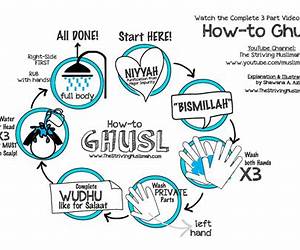 Watch the Complete 3 Part Video
How-to Ghu
YouTube Channel:
The Striving Muslimah
www.youtube.com/muslimah
Explanation & Illustration
by Shawana A.
All DONE!
Start HERE!
Right-Side
FIRST
RUB with
hands!
full body
NIYYAH
Purification from
Major Impurity
"BISMILLAH"
Wash
both Hands
X3
Wash
PRIVATE
Parts
left
hand
Complete
WUDHU
like for Salaat
Water
er Head
X3
r MUST
h Scalp!
How-to
GHUSL
www.TheStrivingMuslimah.com